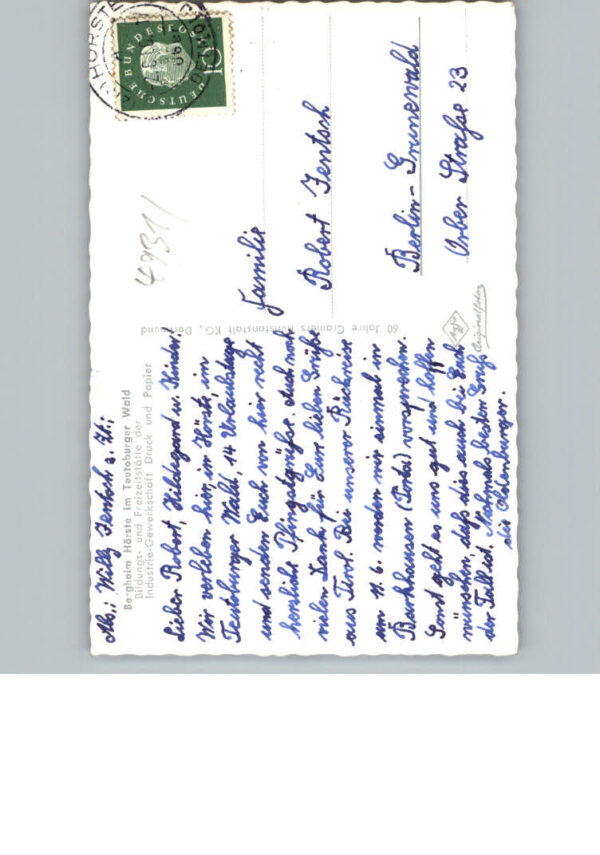 Abs.: Willy Jentsch z. Zt.;
Bergheim Hörste im Teutoburger Wald
Bildungs- und Freizeitstätte der
Industrie-Gewerkschaft Druck und Papier
Lieber Robert, Hildegard u. Kinder,
Wir verleben hier in Hörste, im
Teutoburger Wald, 14 Urlaubstage
und senden Euch von hier recht
herzliche Pfingstgrüße. Auch noch
vielen Dank für Eure lieben Grüße
aus Tirol. Bei unserer Rückreise
am 11.6. werden wir einmal in
Barkhausen (Porta) vorsprechen.
Sonst geht es uns gut und hoffen
wünschen, daß dies auch bei Euch
der Fall ist. Nochmals besten Gruß
die Oldenburger.
60 Jahre Cramers Kunstanstalt KG., Dortmund
Agfa
Originalfoto
49311
DEUTSCHE BUNDESPOST
10
HÖRSTE
Familie
Robert Jentsch
Berlin-Grunewald
Orber Straße 23